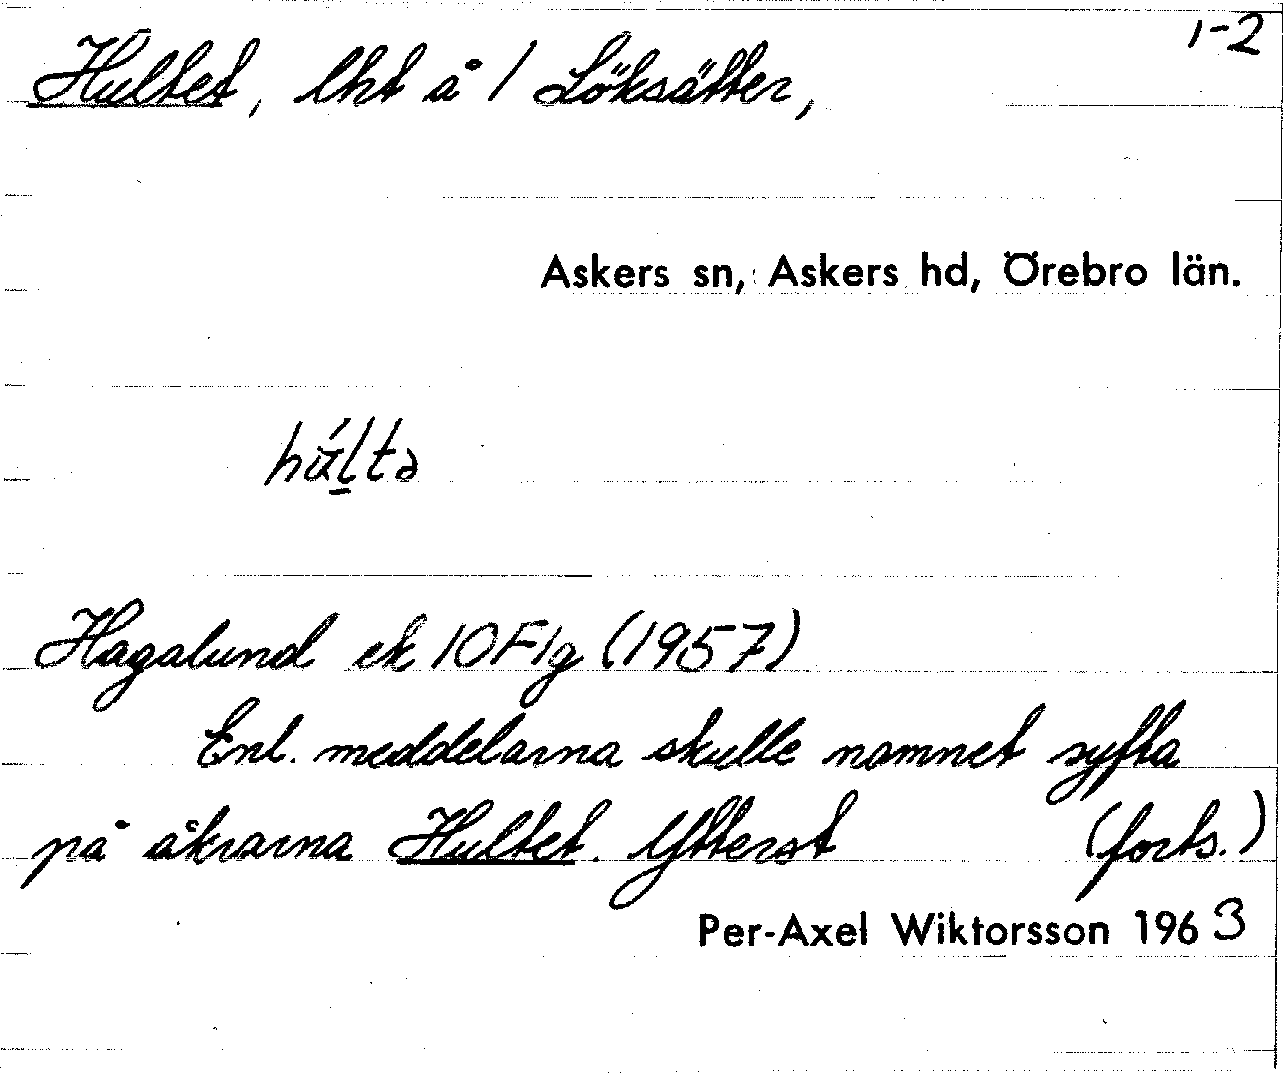 1-2
Hultet, lht å 1 Löksätter,
Askers sn, Askers hd, Örebro län.
Hagalund ek 10F1g (1957)
Enl. meddelarna skulle namnet syfta
på åkrarna Hultet. Ytterst (forts.)
Per-Axel Wiktorsson 1963